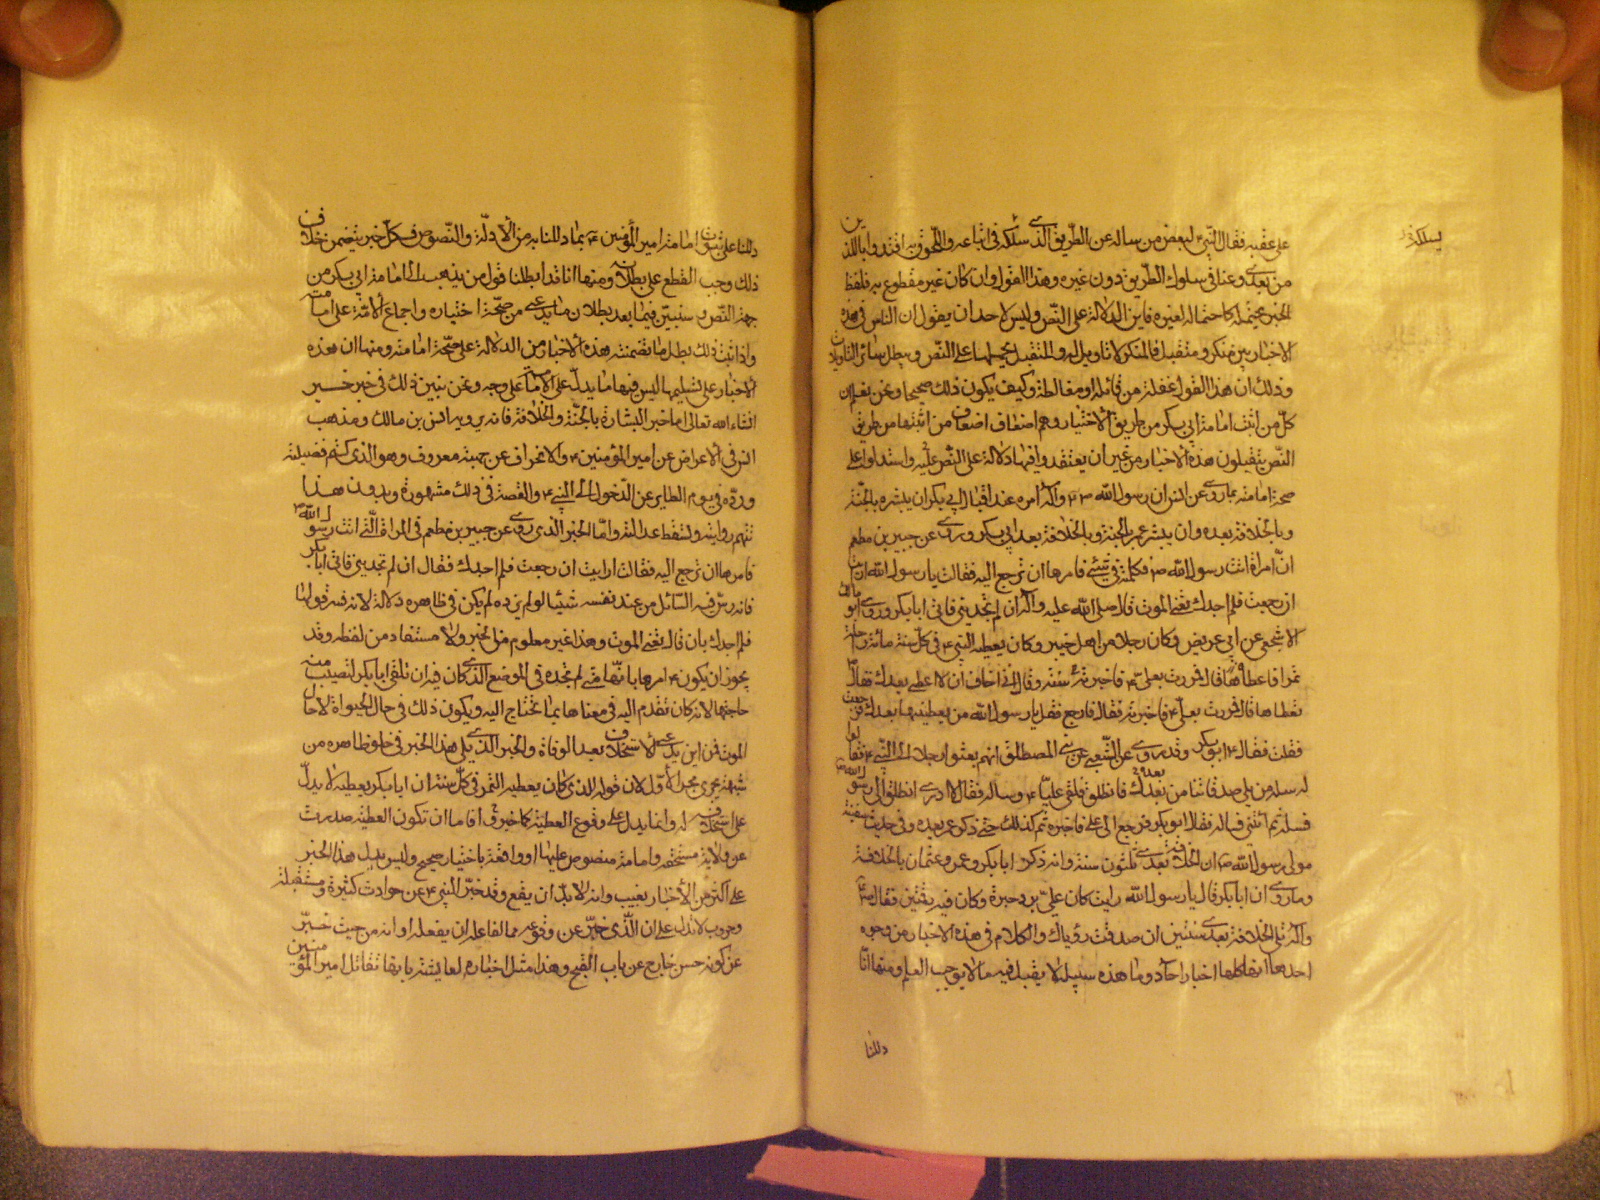 على عقبه فقال النبي لبعض من ساله عن الطريق الذي سلكه في اتباعه واللحوق به اقتدوا باللذين
يسلكه
من بعدي وعنا في سلوك الطريق دون غيره وهذا القول وان كان غير مقطوع به فلفظ
الخبر محتمله كاحتماله لغيره فاين الدلالة على النص وليس لاحد ان يقول ان الناس في هذه
الاخبار بين منكر ومتقبل فالمنكر لا تاويل له والمتقبل يحملها على النص ويبطل سائر التاويلات
وذلك ان هذا القول غفلة من قائله او مغالطة وكيف يكون ذلك صحيحا ونحن نعلم ان
كل من اثبت امامة ابي بكر من طريق الاختيار وهم اضعاف اضعاف من اثبتها من طريق
النص يتقبلون هذه الاخبار من غير ان يعتقدوا فيها دلالة على النص عليه واستدلوا على
صحة امامته بما روي عن انس ان رسول الله امره عند اقبال ابي بكر ان يبشره بالجنة
وبالخلافة بعده وان يبشر عمر بالجنة وبالخلافة بعد ابي بكر وروي عن جبير بن مطعم
ان امراة اتت رسول الله ص فكلمته في شيء فامرها ان ترجع اليه فقالت يا رسول الله ارايت
ان رجعت فلم اجدك يعني الموت قال صلى الله عليه وآله ان لم تجديني فاتي ابا بكر وروى ابو مالك
الاشجعي عن ابي عريض وكان رجلا من اهل خيبر وكان يعطيه النبي في كل سنة مائة راحلة
تمرا
فقلت فقال ابو بكر وقد روي عن الشعبي عن بني المصطلق انهم بعثوا رجلا الى النبي فقالوا
له سله من يلي صدقاتنا من بعدك فانطلق فلقي عليا وساله فقال لا ادري انطلق الى رسول الله
فسله ثم ائتني فساله فقال ابو بكر فرجع الى علي فاخبره ثم كذلك حتى ذكر عمر بعده وفي حديث سفينة
مولى رسول الله ص ان الخلافة بعدي ثلثون سنة وانه ذكر ابا بكر وعمر وعثمان بالخلافة
وما روي ان ابا بكر قال يا رسول الله رايت كان علي برد حبرة وكان فيه رقمتين فقال
وآله تلي الخلافة بعدي سنتين ان صدقت رؤياك والكلام في هذه الاخبار من وجوه
احدها انها كلها اخبار احاد وما هذه سبيله لا يقبل فيما لا يوجب العلم ومنها انا
دللنا
دللنا على ثبوت امامة امير المؤمنين ع بما دللنا به من الادلة والنصوص فكل خبر يتضمن خلاف
ذلك وجب القطع على بطلانه ومنها انا قد ابطلنا قول من يذهب الى امامة ابي بكر من
جهة النص وسنبين فيما بعد بطلان ما يدعى من صحة اختياره واجماع الامة على امامته
واذا ثبت ذلك بطل ما تضمنته هذه الاخبار من الدلالة على صحة امامته ومنها ان هذه
الاخبار على تسليمها ليس فيها ما يدل على الامامة على وجه ونحن نبين ذلك في خبر خبر
انشاء الله تعالى اما خبر البشارة بالجنة والخلافة فانه يرويه انس بن مالك ومذهب
انس في الاعراض عن امير المؤمنين ع والانحراف عن جهته معروف وهو الذي كتم فضيلته
ورده في يوم الطاير عن الدخول الى النبي ع والقصة في ذلك مشهورة وبدون هذا
تتهم روايته وتسقط عدالته واما الخبر الذي روي عن جبير بن مطعم في المراة التي اتت رسول الله
فامرها ان ترجع اليه فقالت ارايت ان رجعت فلم اجدك فقال ان لم تجديني فاتي ابا بكر
فانه دس فيه السائل من عند نفسه شيئا لو لم يزده لم يكن في ظاهره دلالة لانه فسر قولها
فلم اجدك بان قال يعني الموت وهذا غير معلوم من الخبر ولا مستفاد من لفظه وقد
يجوز ان يكون ع امرها بانها متى لم تجده في الموضع الذي كان فيه ان تلقى ابا بكر لتصيب منه
حاجتها لانه كان تقدم اليه في معناها بما تحتاج اليه ويكون ذلك في حال الحيوة لا حال
الموت فمن اين يدعى الاستخلاف بعد الوفاة والخبر الذي يلي هذا الخبر في خلو ظاهره من
شبهة يجري مجرى الاول لان قوله الذي كان يعطيه التمر في كل سنة ان ابا بكر يعطيه لا يدل
على استخلافه له وانما يدل على وقوع العطية كما خبر فاما ان تكون العطية صدرت
عن ولاية مستحقه وامامة منصوص عليها او واقعة باختيار صحيح وليس يدل هذا الخبر
على اكثر من الاخبار بغيب وانه لا بد ان يقع وقد خبر النبي ع عن حوادث كثيرة ومستقبلة
وجوب لا تدل على ان الذي خبر عن وقوعه مما لفاعله ان يفعله او انه من حيث خبر
عن كونه حسن خارج عن باب القبح وهذا مثل اخباره لعايشة بانها تقاتل امير المؤمنين